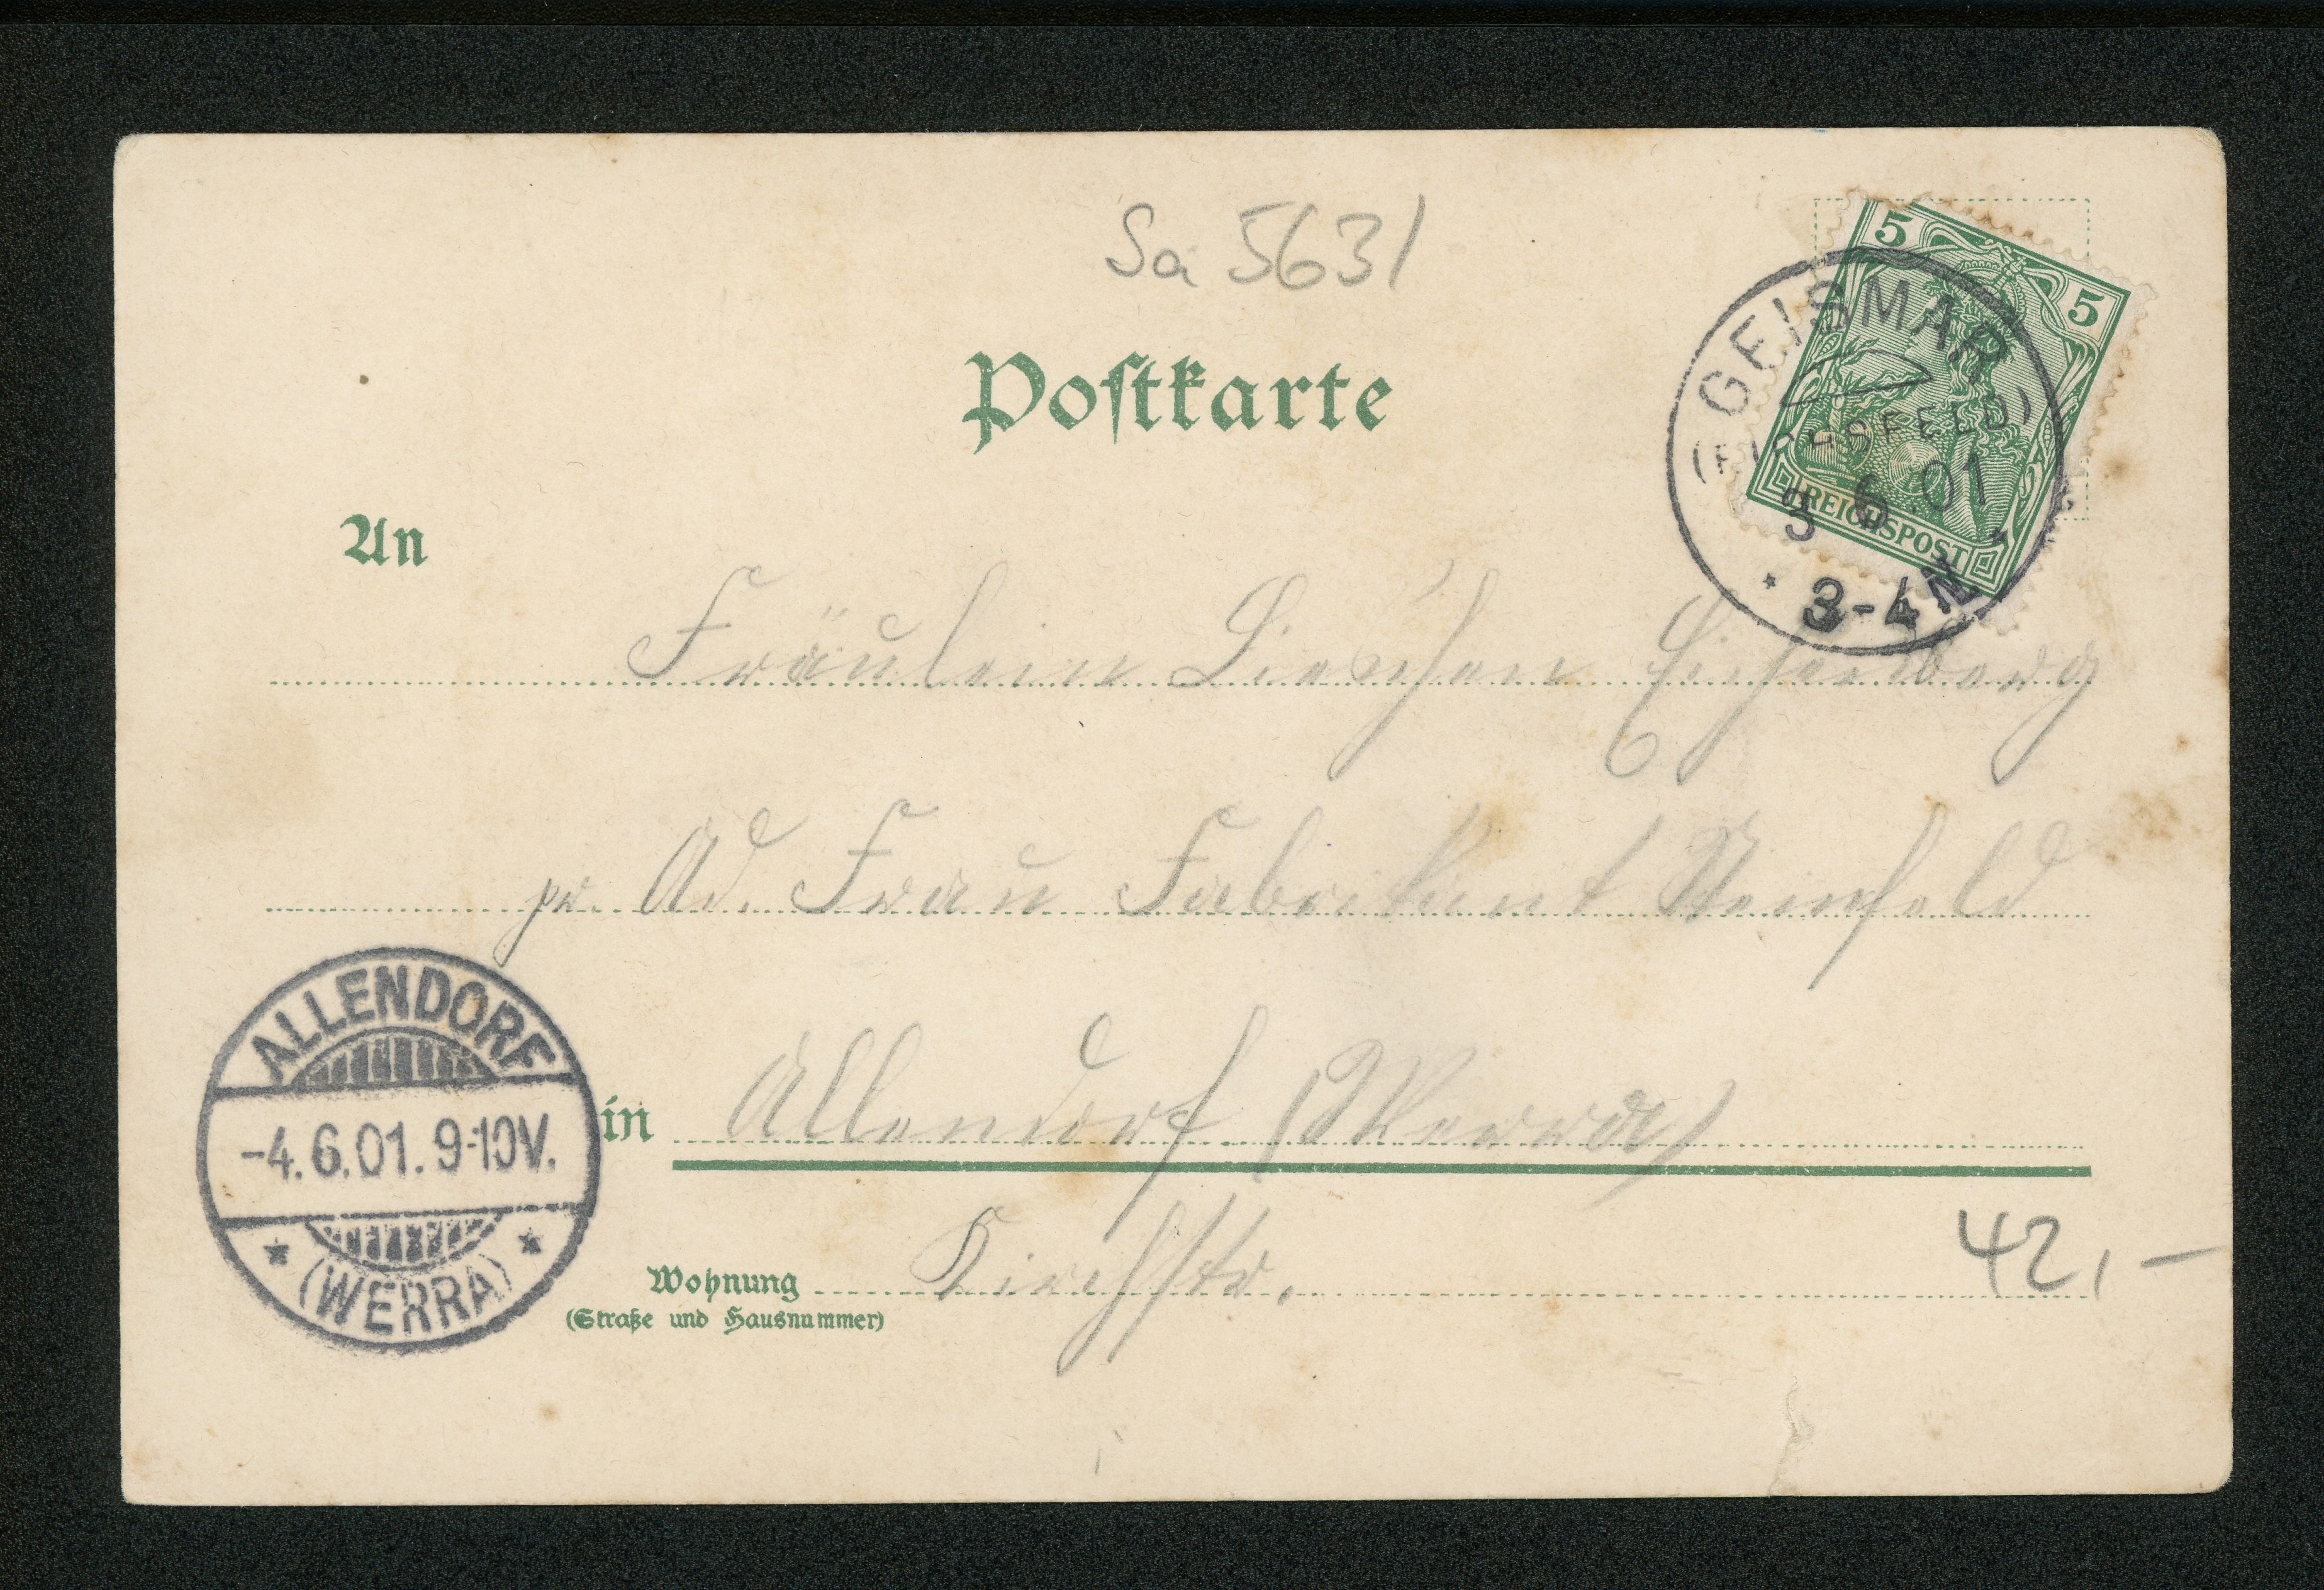 Sa 5631
Postkarte
5 5
REICHSPOST
GEISMAR
(EICHSFELD)
3 6.01
* 3-4 N
An
Fräulein Lieschen
pr. Ad. Frau Fabrikant
ALLENDORF
-4.6.01.9-10V.
* (WERRA) *
in Allendorf (Werra)
Wohnung Kirchstr.
(Straße und Hausnummer)
42,-